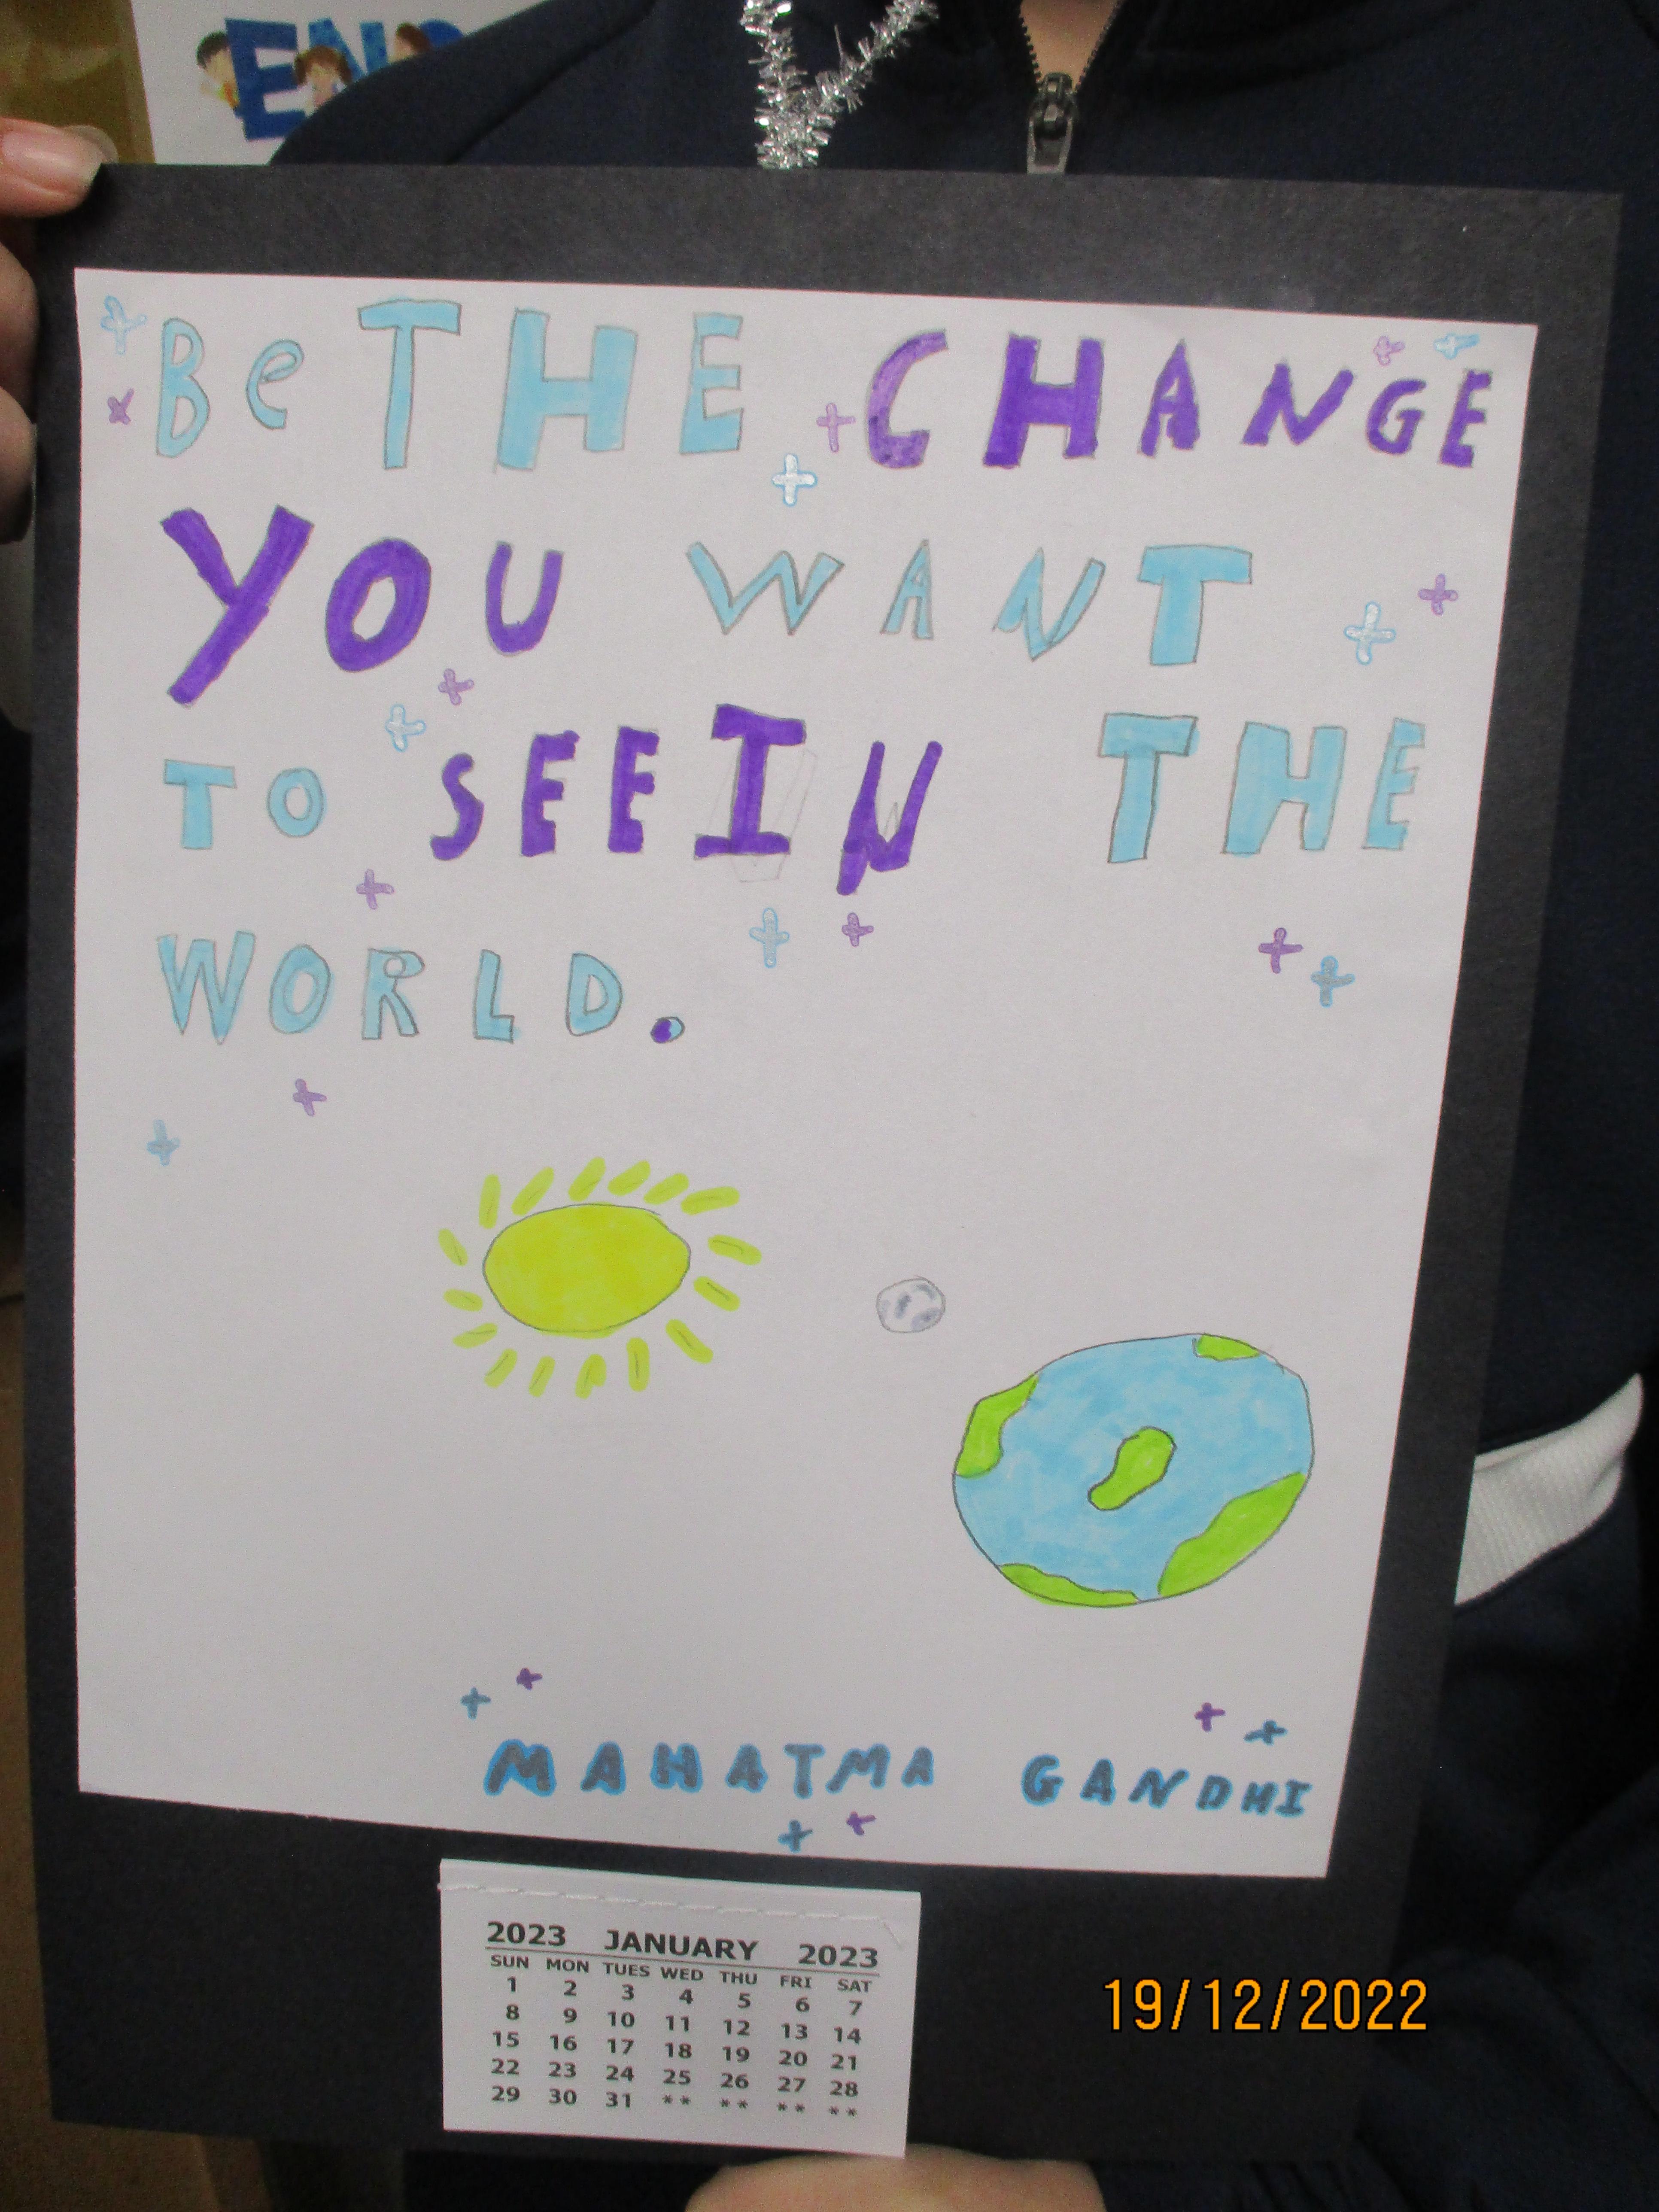 EN
Be THE CHANGE
YOU WANT
TO SEE IN THE
WORLD.
MAHATMA GANDHI
2023 JANUARY 2023
SUN MON TUES WED THU FRI SAT
1 2 3 4 5 6 7
8 9 10 11 12 13 14
15 16 17 18 19 20 21
22 23 24 25 26 27 28
29 30 31 ** ** ** **
19/12/2022